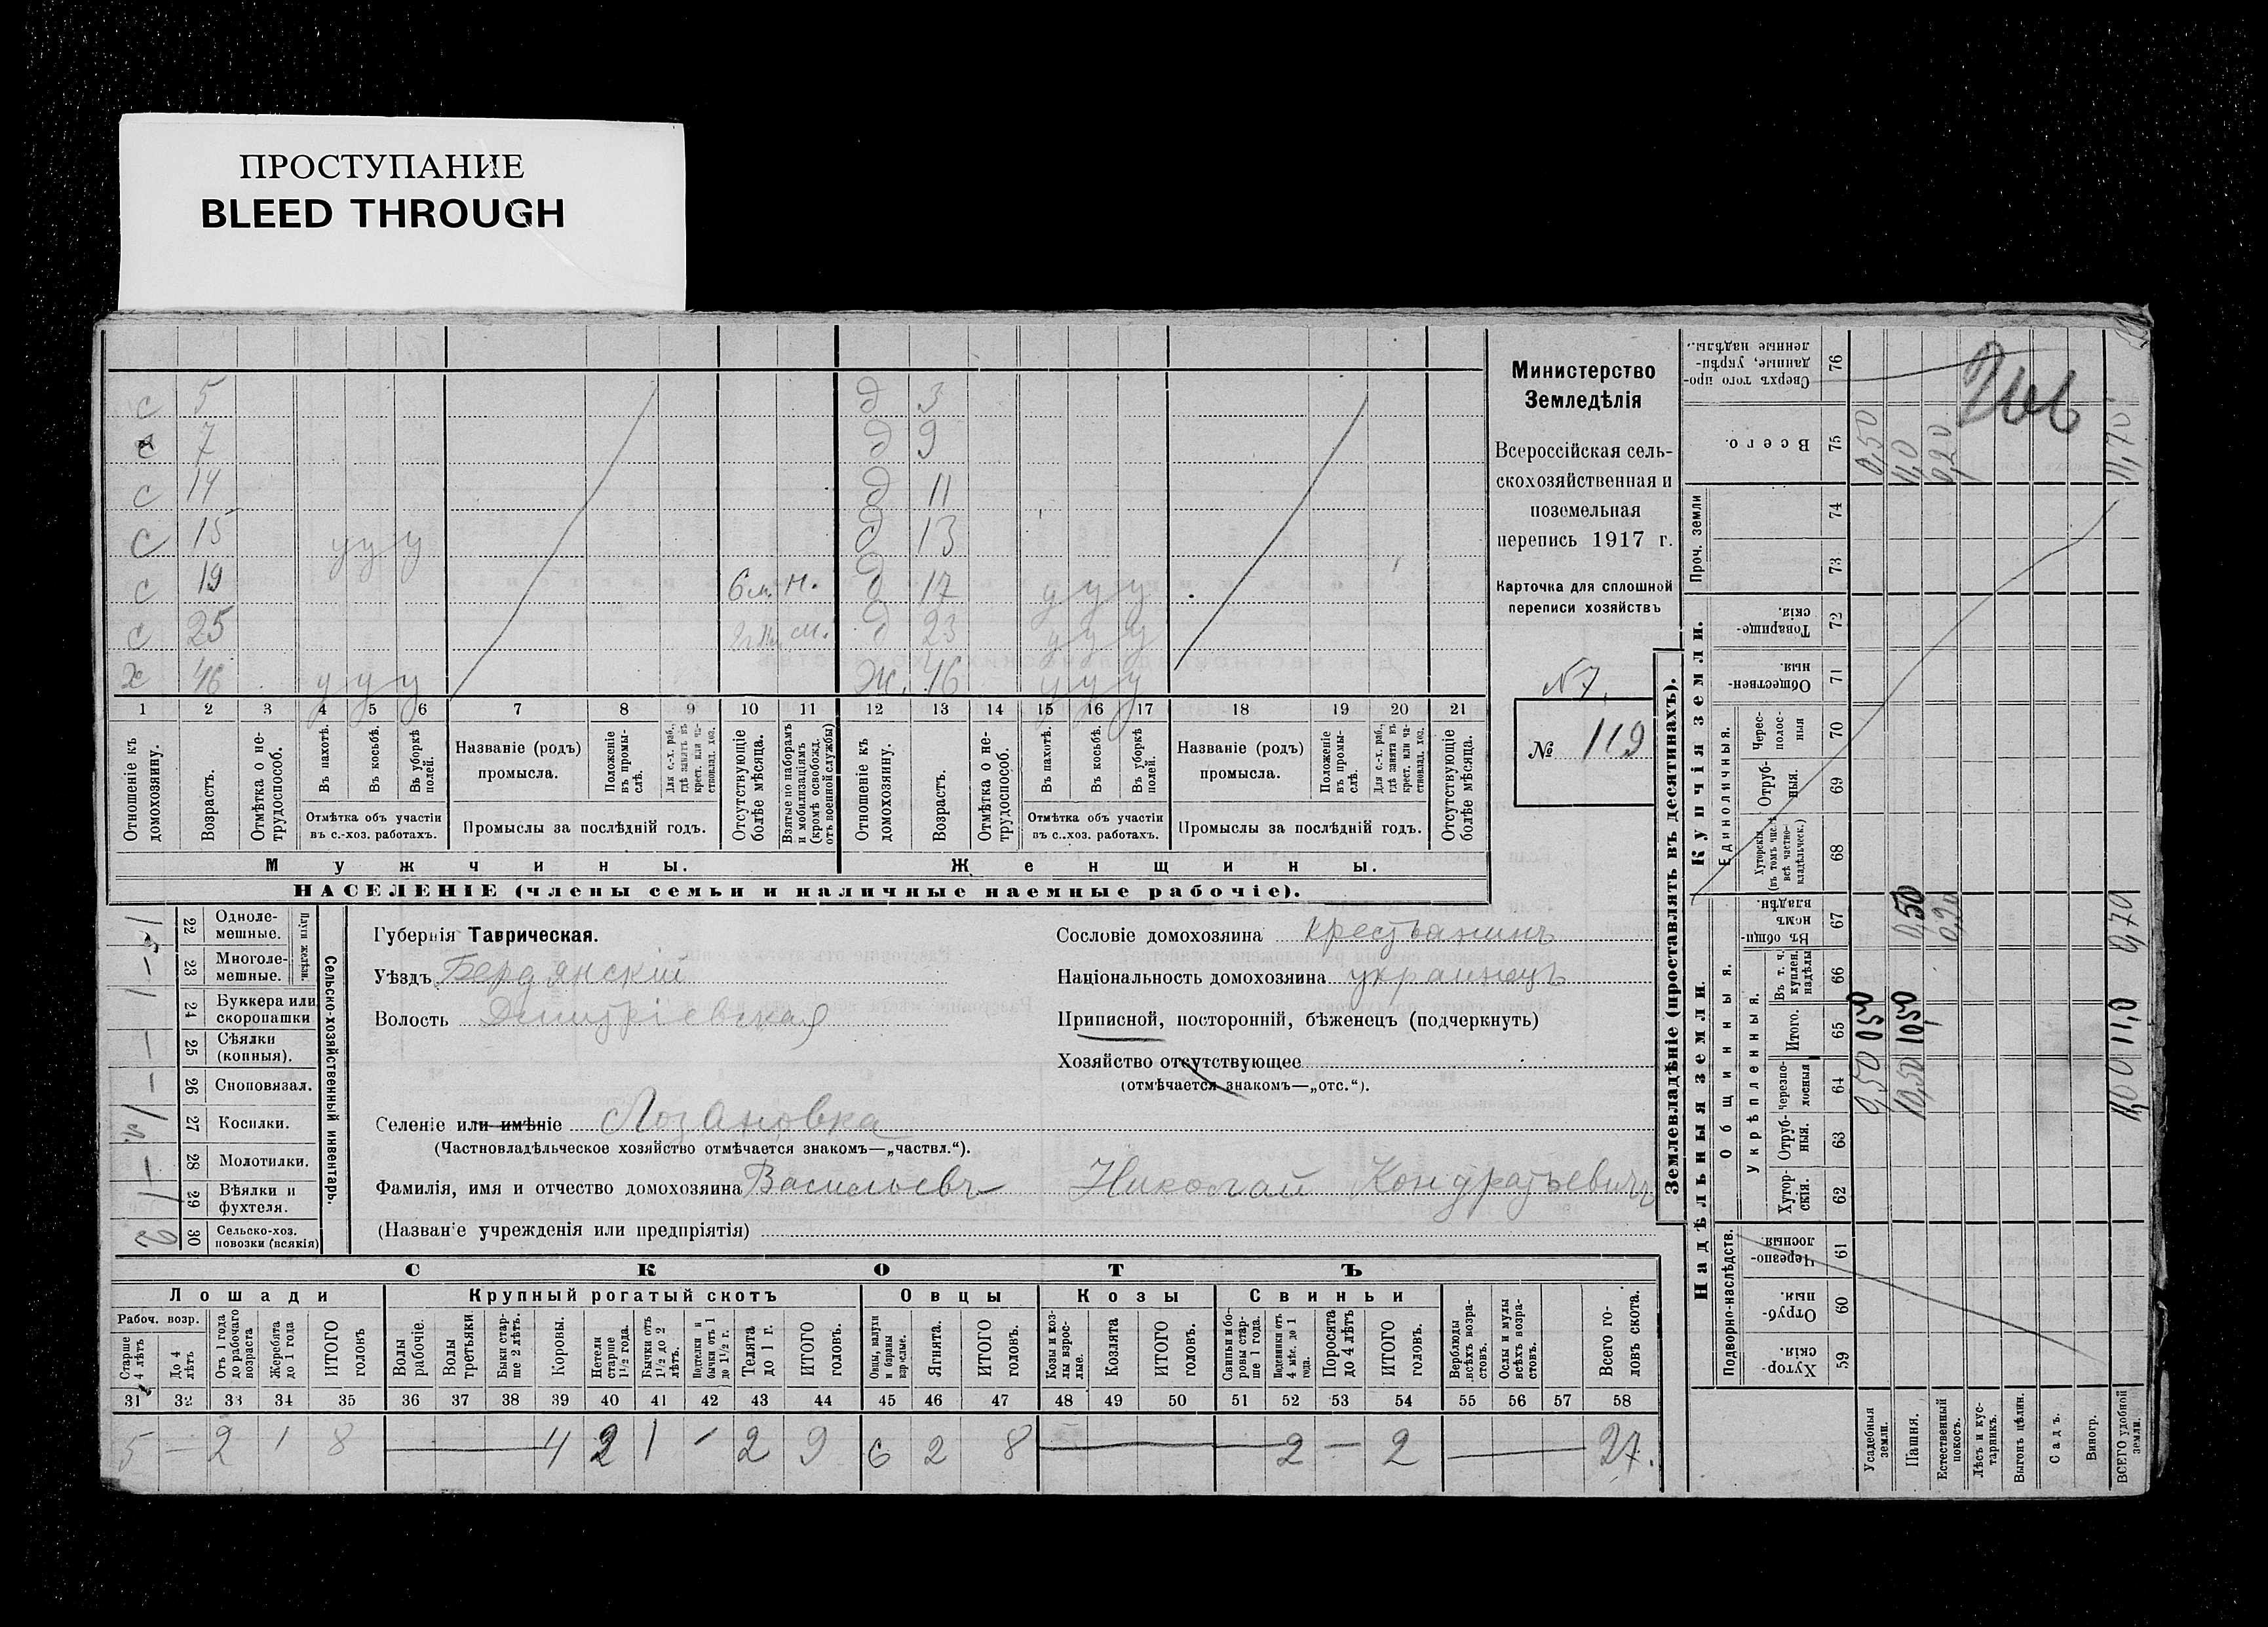 ПРОСТУПАНИЕ
BLEED THROUGH
с 5 д 3
с 7 д 9
с 14 д 11
с 15 у у у д 13
с 19 6 м. н. д 17 у у у
с 25 м. д 23 у у у
х 46 у у у Ж. 46 у у у
1 2 3 4 5 6 7 8 9 10 11 12 13 14 15 16 17 18 19 20 21
Отношеніе къ домохозяину.
Возрастъ.
Отмѣтка о не-трудоспособ.
Въ пахотѣ.
Въ косьбѣ.
Въ уборкѣ полей.
Отмѣтка объ участіи въ с.-хоз. работахъ.
Названіе (родъ) промысла.
Положеніе въ промы-слѣ.
Для с.-х. раб., гдѣ занятъ въ крест. или ча-стновлад. хоз.
Промыслы за послѣдній годъ.
Отсутствующіе болѣе мѣсяца.
Взятые по наборамъ и мобилизаціямъ (кромѣ освобожд. отъ военной службы)
Отношеніе къ домохозяину.
Возрастъ.
Отмѣтка о не-трудоспособ.
Въ пахотѣ.
Въ косьбѣ.
Въ уборкѣ полей.
Отмѣтка объ участіи въ с.-хоз. работахъ.
Названіе (родъ) промысла.
Положеніе въ промы-слѣ.
Для с.-х. раб., гдѣ занята въ крест. или ча-стновлад. хоз.
Промыслы за послѣдній годъ.
Отсутствующіе болѣе мѣсяца.
Мужчины. Женщины.
НАСЕЛЕНІЕ (члены семьи и наличные наемные рабочіе).
Министерство
Земледѣлія
Всероссійская сель-
скохозяйственная и
поземельная
перепись 1917 г.
Карточка для сплошной
переписи хозяйствъ
N7.
№ 119
Сельско-хозяйственный инвентарь.
Плуги желѣзн.
22 Одноле-мешные. 1
23 Многоле-мешные.
24 Буккера или скоропашки 1
25 Сѣялки (конныя). —
26 Сноповязал. —
27 Косилки.
28 Молотилки. —
29 Вѣялки и фухтеля. 1
30 Сельско-хоз. повозки (всякія) 2
Губернія Таврическая.
Уѣздъ Бердянскій
Волость Дмитріевская
Селеніе или имѣніе Лозановка
(Частновладѣльческое хозяйство отмѣчается знакомъ—„частвл.“).
Фамилія, имя и отчество домохозяина Васильевъ Николай Кондратьевичъ
(Названіе учрежденія или предпріятія)
Сословіе домохозяина крестьянинъ
Національность домохозяина украинецъ
Приписной, посторонній, бѣженецъ (подчеркнуть)
Хозяйство отсутствующее
(отмѣчается знакомъ—„отс.“).
СКОТЪ
Лошади Крупный рогатый скотъ Овцы Козы Свиньи
Рабоч. возр.
Старше 4 лѣтъ
До 4 лѣтъ
Отъ 1 года до рабочаго возраста
Жеребята до 1 года
ИТОГО головъ
Волы рабочіе.
Волы третьяки
Быки стар-ше 2 лѣтъ.
Коровы.
Нетели старше 1½ года.
Бычки отъ 1½ до 2 лѣтъ.
Подтелки и бычки отъ 1 до 1½ г.
Телята до 1 г.
ИТОГО головъ.
Овцы, валухи и бараны взрослые.
Ягнята.
ИТОГО головъ.
Козы и коз-лы взрос-лые.
Козлята
ИТОГО головъ.
Свиньи и бо-ровы стар-ше 1 года.
Подсвинки отъ 4 мѣс. до 1 года.
Поросята до 4 лѣтъ
ИТОГО головъ.
Верблюды всѣхъ возра-стовъ.
Ослы и мулы всѣхъ возра-стовъ.
Всего го-ловъ скота.
31 32 33 34 35 36 37 38 39 40 41 42 43 44 45 46 47 48 49 50 51 52 53 54 55 56 57 58
5 — 2 1 8 — 4 2 1 — 2 9 6 2 8 — 2 — 2 — 27.
Землевладѣніе (проставлять въ десятинахъ).
Надѣльныя земли. Купчія земли.
Подворно-наслѣдств.
Общинныя.
Укрѣпленныя.
Единоличныя.
Проч. земли
59 Хутор-скія.
60 Отруб-ныя.
61 Черезпо-лосныя.
62 Хутор-скія.
63 Отруб-ныя.
64 черезпо-лосныя
65 Итого.
66 Въ т. ч. куплен. надѣлы
67 Въ общин-номъ владѣн.
68 Хуторскія (въ томъ числѣ всѣ частно-владѣльческ.)
69 Отруб-ныя.
70 Черес-полос-ныя
71 Обществен-ныя.
72 Товарище-скія.
73
74
75 Всего.
76 Сверхъ того про-данные, укрѣп-ленные надѣлы.
Усадебныя земли. 0,50 0,50 0,50
Пашня. 10,50 10,50 0,50 11,0
Естественный покосъ. 0,20 0,20
Лѣсъ и кус-тарникъ.
Выгонъ цѣлин.
Садъ.
Виногр.
ВСЕГО удобной земли. 11,00 11,0 0,70 11,70